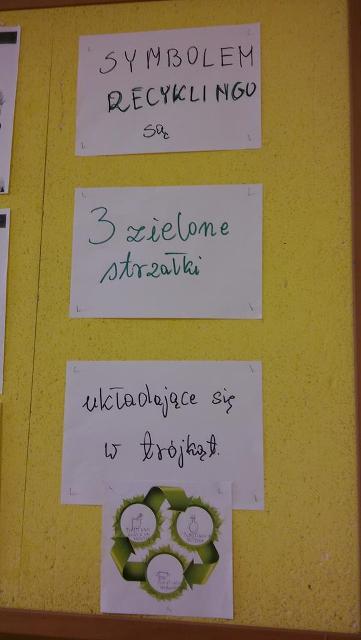 SYMBOLEM
RECYKLINGU
są
3 zielone
strzałki
układające się
w trójkąt.